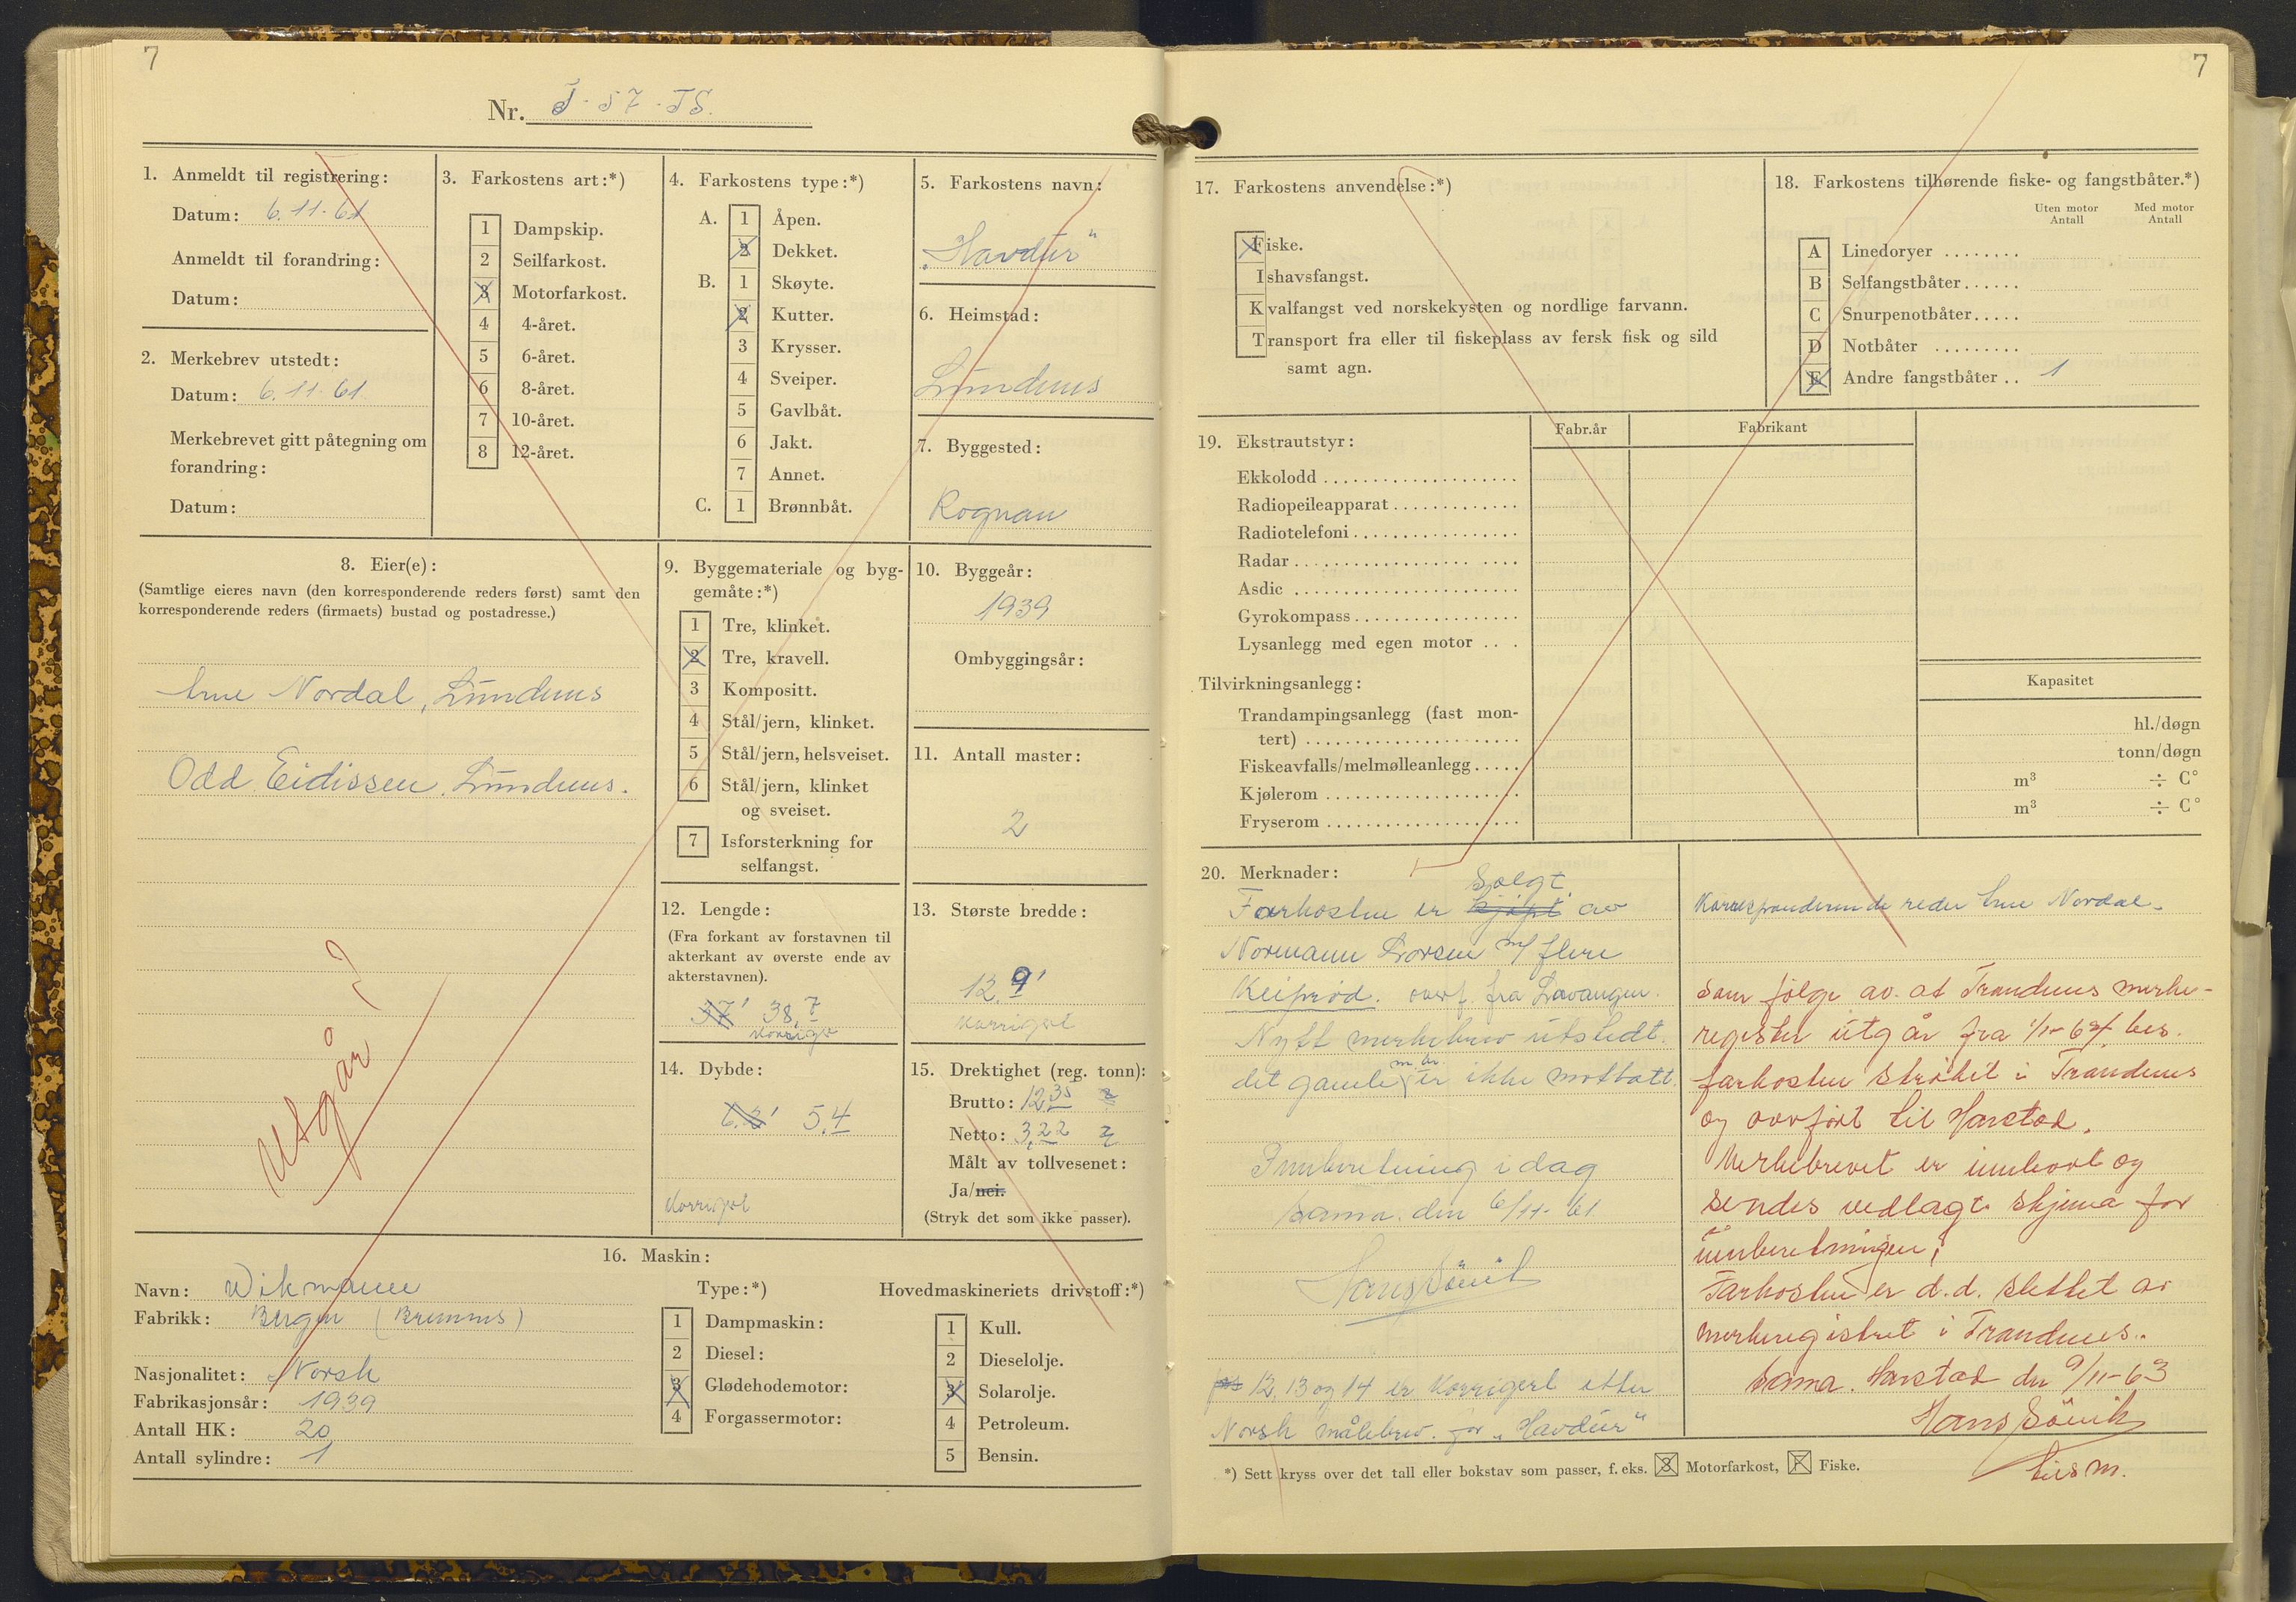 7
Nr. T-57-TS.
1. Anmeldt til registrering:
Datum: 6.11-61
Anmeldt til forandring:
Datum:
2. Merkebrev utstedt:
Datum: 6.11-61
Merkebrevet gitt påtegning om
forandring:
Datum:
3. Farkostens art:*)
1 Dampskip.
2 Seilfarkost.
3 Motorfarkost.
4 4-året.
5 6-året.
6 8-året.
7 10-året.
8 12-året.
4. Farkostens type:*)
A. 1 Åpen.
2 Dekket.
B. 1 Skøyte.
2 Kutter.
3 Krysser.
4 Sveiper.
5 Gavlbåt.
6 Jakt.
7 Annet.
C. 1 Brønnbåt.
5. Farkostens navn:
„Havdur"
6. Heimstad:
Lundenes
7. Byggested:
Rognan
8. Eier(e):
(Samtlige eieres navn (den korresponderende reders først) samt den
korresponderende reders (firmaets) bustad og postadresse.)
Nordal, Lundenes
Odd Eidissen, Lundenes.
Utgår
9. Byggemateriale og byg-
gemåte:*)
1 Tre, klinket.
2 Tre, kravell.
3 Kompositt.
4 Stål/jern, klinket.
5 Stål/jern, helsveiset.
6 Stål/jern, klinket
og sveiset.
7 Isforsterkning for
selfangst.
10. Byggeår:
1939
Ombyggingsår:
11. Antall master:
2
12. Lengde:
(Fra forkant av forstavnen til
akterkant av øverste ende av
akterstavnen).
37' 38,7
13. Største bredde:
12,9'
korrigert
14. Dybde:
5,4
Korrigert
15. Drektighet (reg. tonn):
Brutto: 12,35
Netto: 3,22
Målt av tollvesenet:
Ja/nei.
(Stryk det som ikke passer).
16. Maskin:
Navn: Wikmann
Fabrikk: Bergen (Bremnes)
Nasjonalitet: Norsk
Fabrikasjonsår: 1939
Antall HK: 20
Antall sylindre: 1
Type:*)
1 Dampmaskin:
2 Diesel:
3 Glødehodemotor:
4 Forgassermotor:
Hovedmaskineriets drivstoff:*)
1 Kull.
2 Dieselolje.
3 Solarolje.
4 Petroleum.
5 Bensin.
7
17. Farkostens anvendelse:*)
Fiske.
Ishavsfangst.
Kvalfangst ved norskekysten og nordlige farvann.
Transport fra eller til fiskeplass av fersk fisk og sild
samt agn.
18. Farkostens tilhørende fiske- og fangstbåter.*)
Uten motor Antall Med motor Antall
A Linedoryer
B Selfangstbåter
C Snurpenotbåter
D Notbåter
E Andre fangstbåter 1
19. Ekstrautstyr:
Fabr.år Fabrikant
Ekkolodd
Radiopeileapparat
Radiotelefoni
Radar
Asdic
Gyrokompass
Lysanlegg med egen motor
Tilvirkningsanlegg:
Kapasitet
Trandampingsanlegg (fast mon-
tert) hl./døgn
Fiskeavfalls/melmølleanlegg tonn/døgn
Kjølerom m³ ÷ C°
Fryserom m³ ÷ C°
20. Merknader:
Solgt
Farkosten er kjøpt av
Normann Larsen m/ flere
overf. fra Lavangen.
Nytt merkebrev utstedt.
det gamle er ikke mottatt.
Innberetning i dag
Sama. den 6/11-61
Hans Sövik
12, 13 og 14 er korrigert etter
Norsk målebrev. for „Havdur"
Korresponderende reder Nordal
Som følge av at Trondenes merke-
register utgår fra 1/11-63 bes.
farkosten strøket i Trondenes
og overført til Harstad.
Merkebrevet er innlevert og
sendes vedlagt skjema for
innberetningen.
Farkosten er d.d. slettet av
merkeregistret i Trondenes.
Sama. Harstad den 9/11-63
Hans Sövik
tils m.
*) Sett kryss over det tall eller bokstav som passer, f. eks. 3 Motorfarkost, F Fiske.